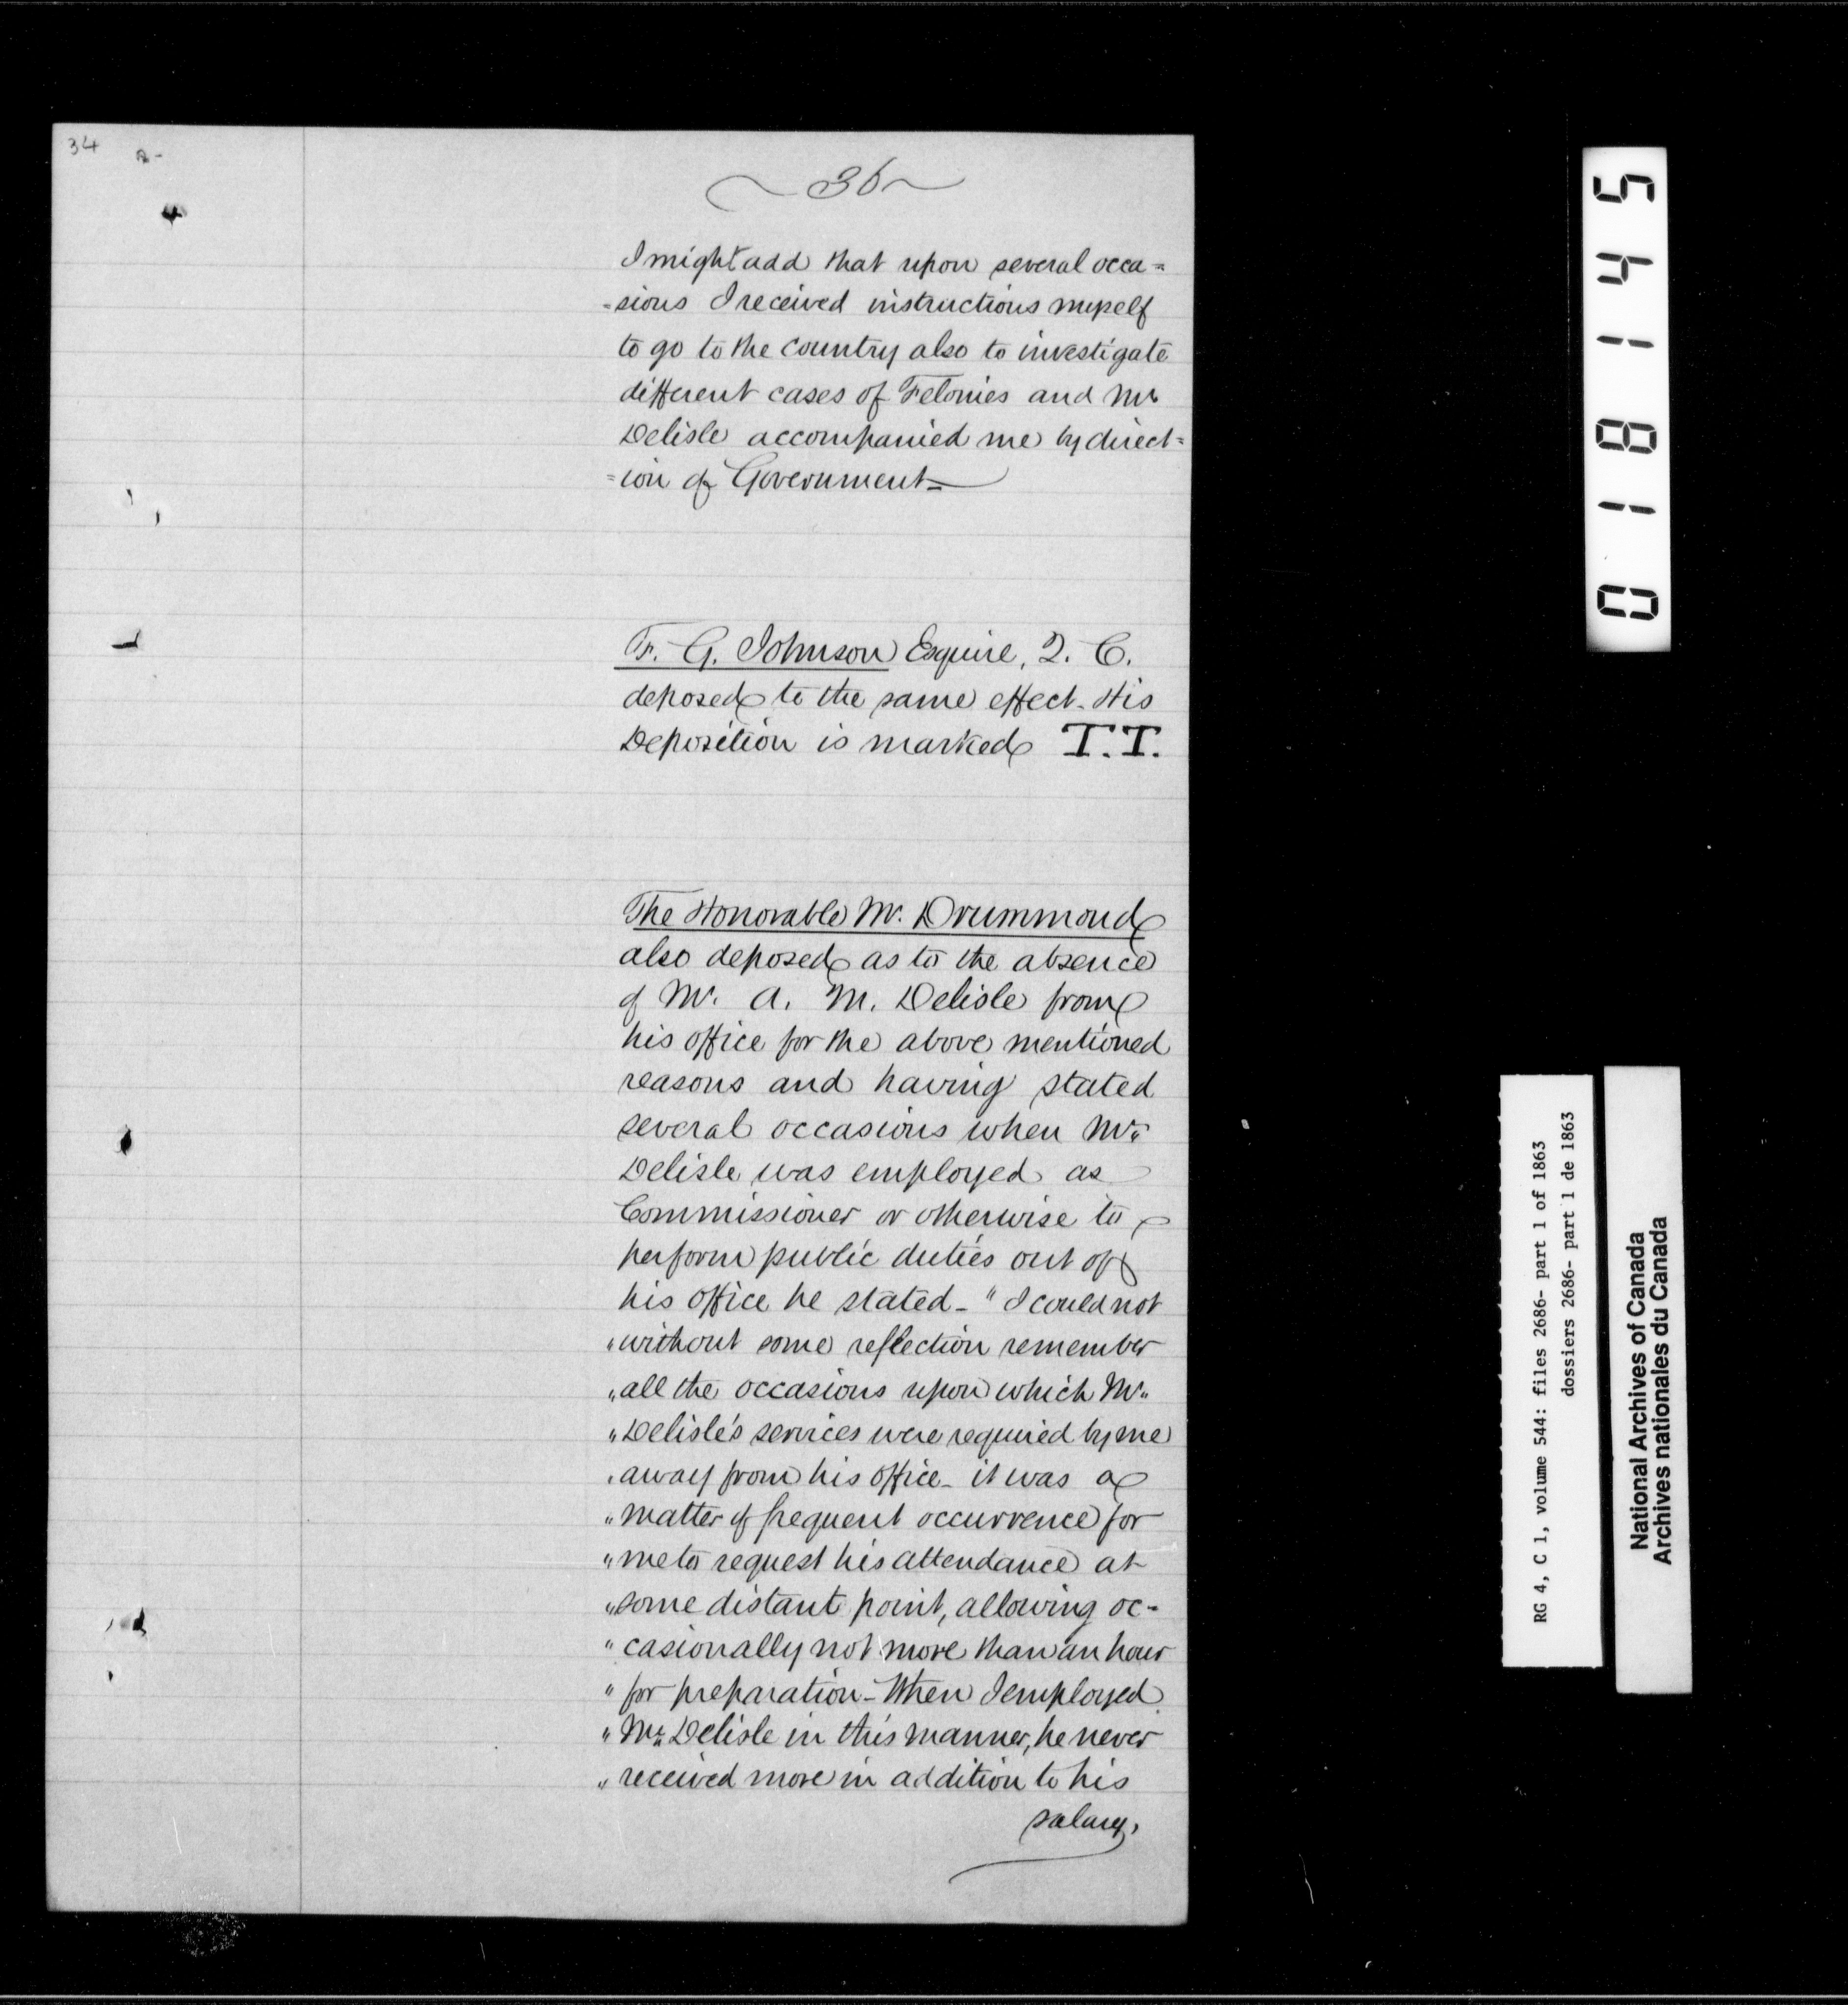 34
~ 36 ~
I might add that upon several occa=
=sions I received instructions myself
to go to the country also to investigate
different cases of Felonies and Mr
Delisle accompanied me by direct=
=ion of Government=
F. G. Johnson Esquire, Q. C.
deposed to the same effect. His
Deposition is marked T.T.
The Honorable Mr. Drummond
also deposed as to the absence
of Mr. A. M. Delisle from
his office for the above mentioned
reasons and having stated
several occasions when Mr.
Delisle was employed as
Commissioner or otherwise to
perform public duties out of
his office he stated - "I could not
"without some reflection remember
"all the occasions upon which Mr.
"Delisle's services were required by me
"away from his office - it was a
"matter of frequent occurrence for
"me to request his attendance at
"some distant point, allowing oc-
"casionally not more than an hour
"for preparation - When I employed
"Mr. Delisle in this manner, he never
"received more in addition to his
salary,
018145
RG 4, C 1, volume 544: files 2686- part 1 of 1863
dossiers 2686- part 1 de 1863
National Archives of Canada
Archives nationales du Canada